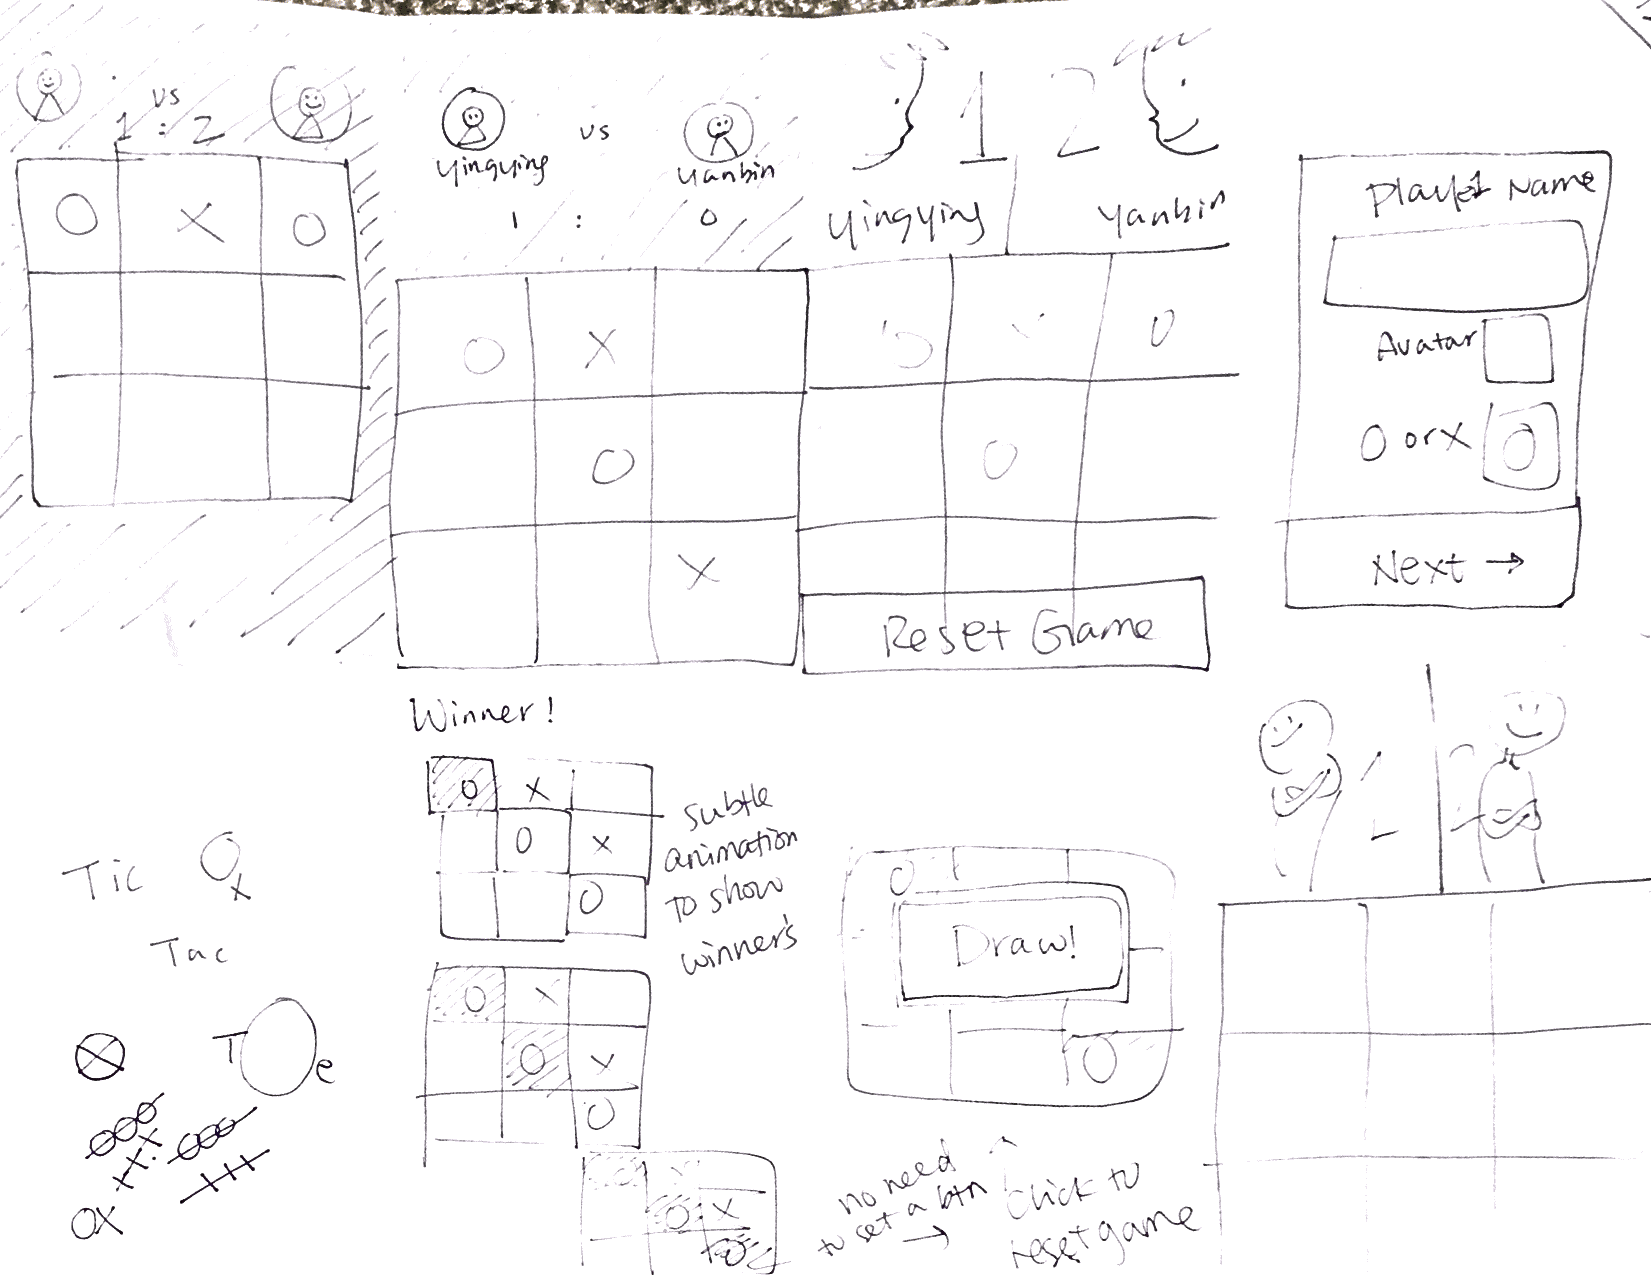 vs
1 : 2
O X O
yingying
vs
yanbin
1 : 0
O X
O
X
1 2
yingying
yanbin
O X O
O
Reset Game
Player1 Name
Avatar
O or X
O
Next →
Winner!
O X
O X
O
subtle
animation
to show
winner's
O X
O X
O
O X
O X
O
Tic
O
X
Tac
Toe
OOO
OOO
XXX
XXX
OX
O
Draw!
O
no need
to set a btn
→
click to
reset game
1 2